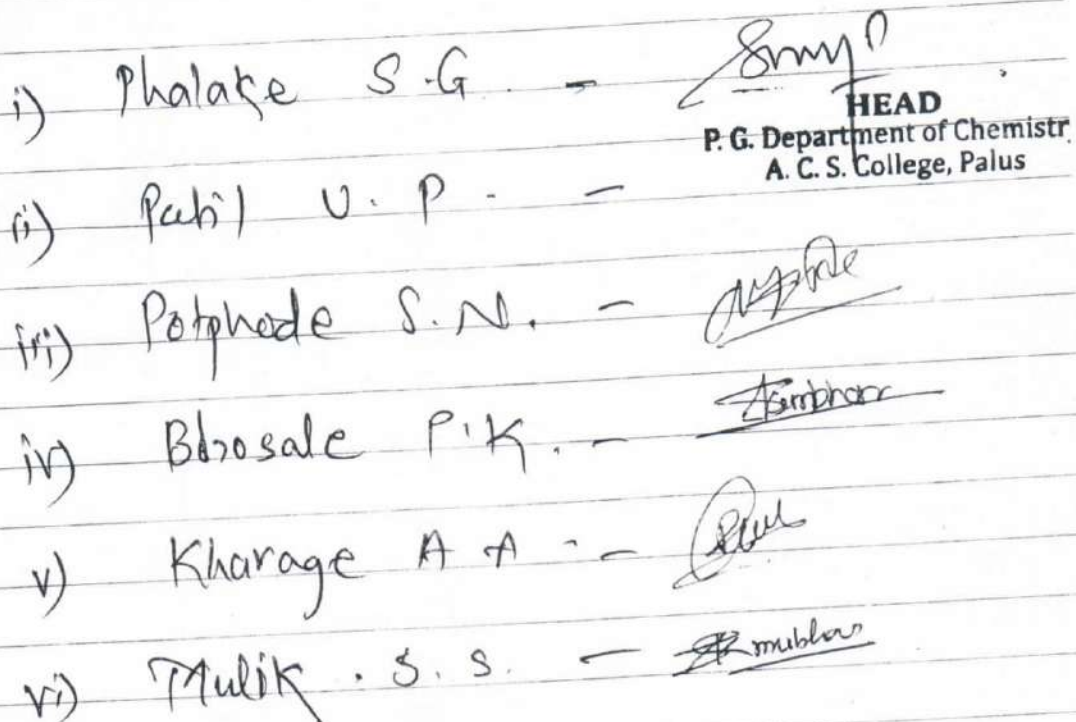 i) Phalake S.G. -
HEAD
P. G. Department of Chemistr
A. C. S. College, Palus
ii) Patil U. P. -
iii) Potphode S. N. -
iv) Bhosale P. K. -
v) Kharage A A -
vi) Mulik . S. S. -